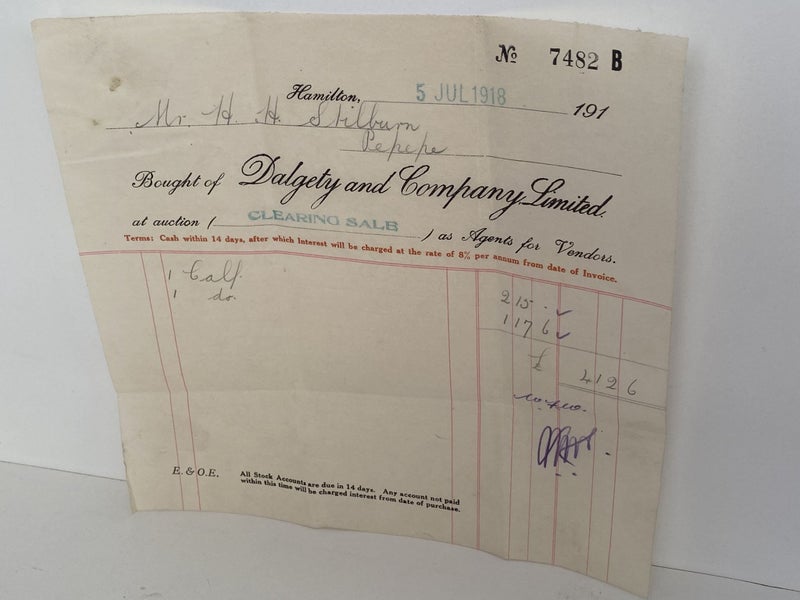 No 7482 B
Hamilton, 5 JUL 1918 191
Mr. H. H. Stilburn
Pepepe
Bought of Dalgety and Company, Limited.
at auction ( CLEARING SALE ) as Agents for Vendors.
Terms: Cash within 14 days, after which Interest will be charged at the rate of 8% per annum from date of Invoice.
1 Calf. 2 15 -
1 do. 1 17 6
£ 4 12 6
E. & O.E. All Stock Accounts are due in 14 days. Any account not paid
within this time will be charged interest from date of purchase.